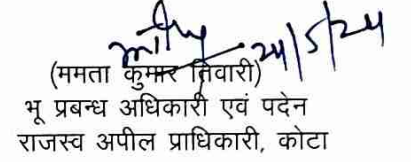 24/5/24
(ममता कुमार तिवारी)
भू प्रबन्ध अधिकारी एवं पदेन
राजस्व अपील प्राधिकारी, कोटा